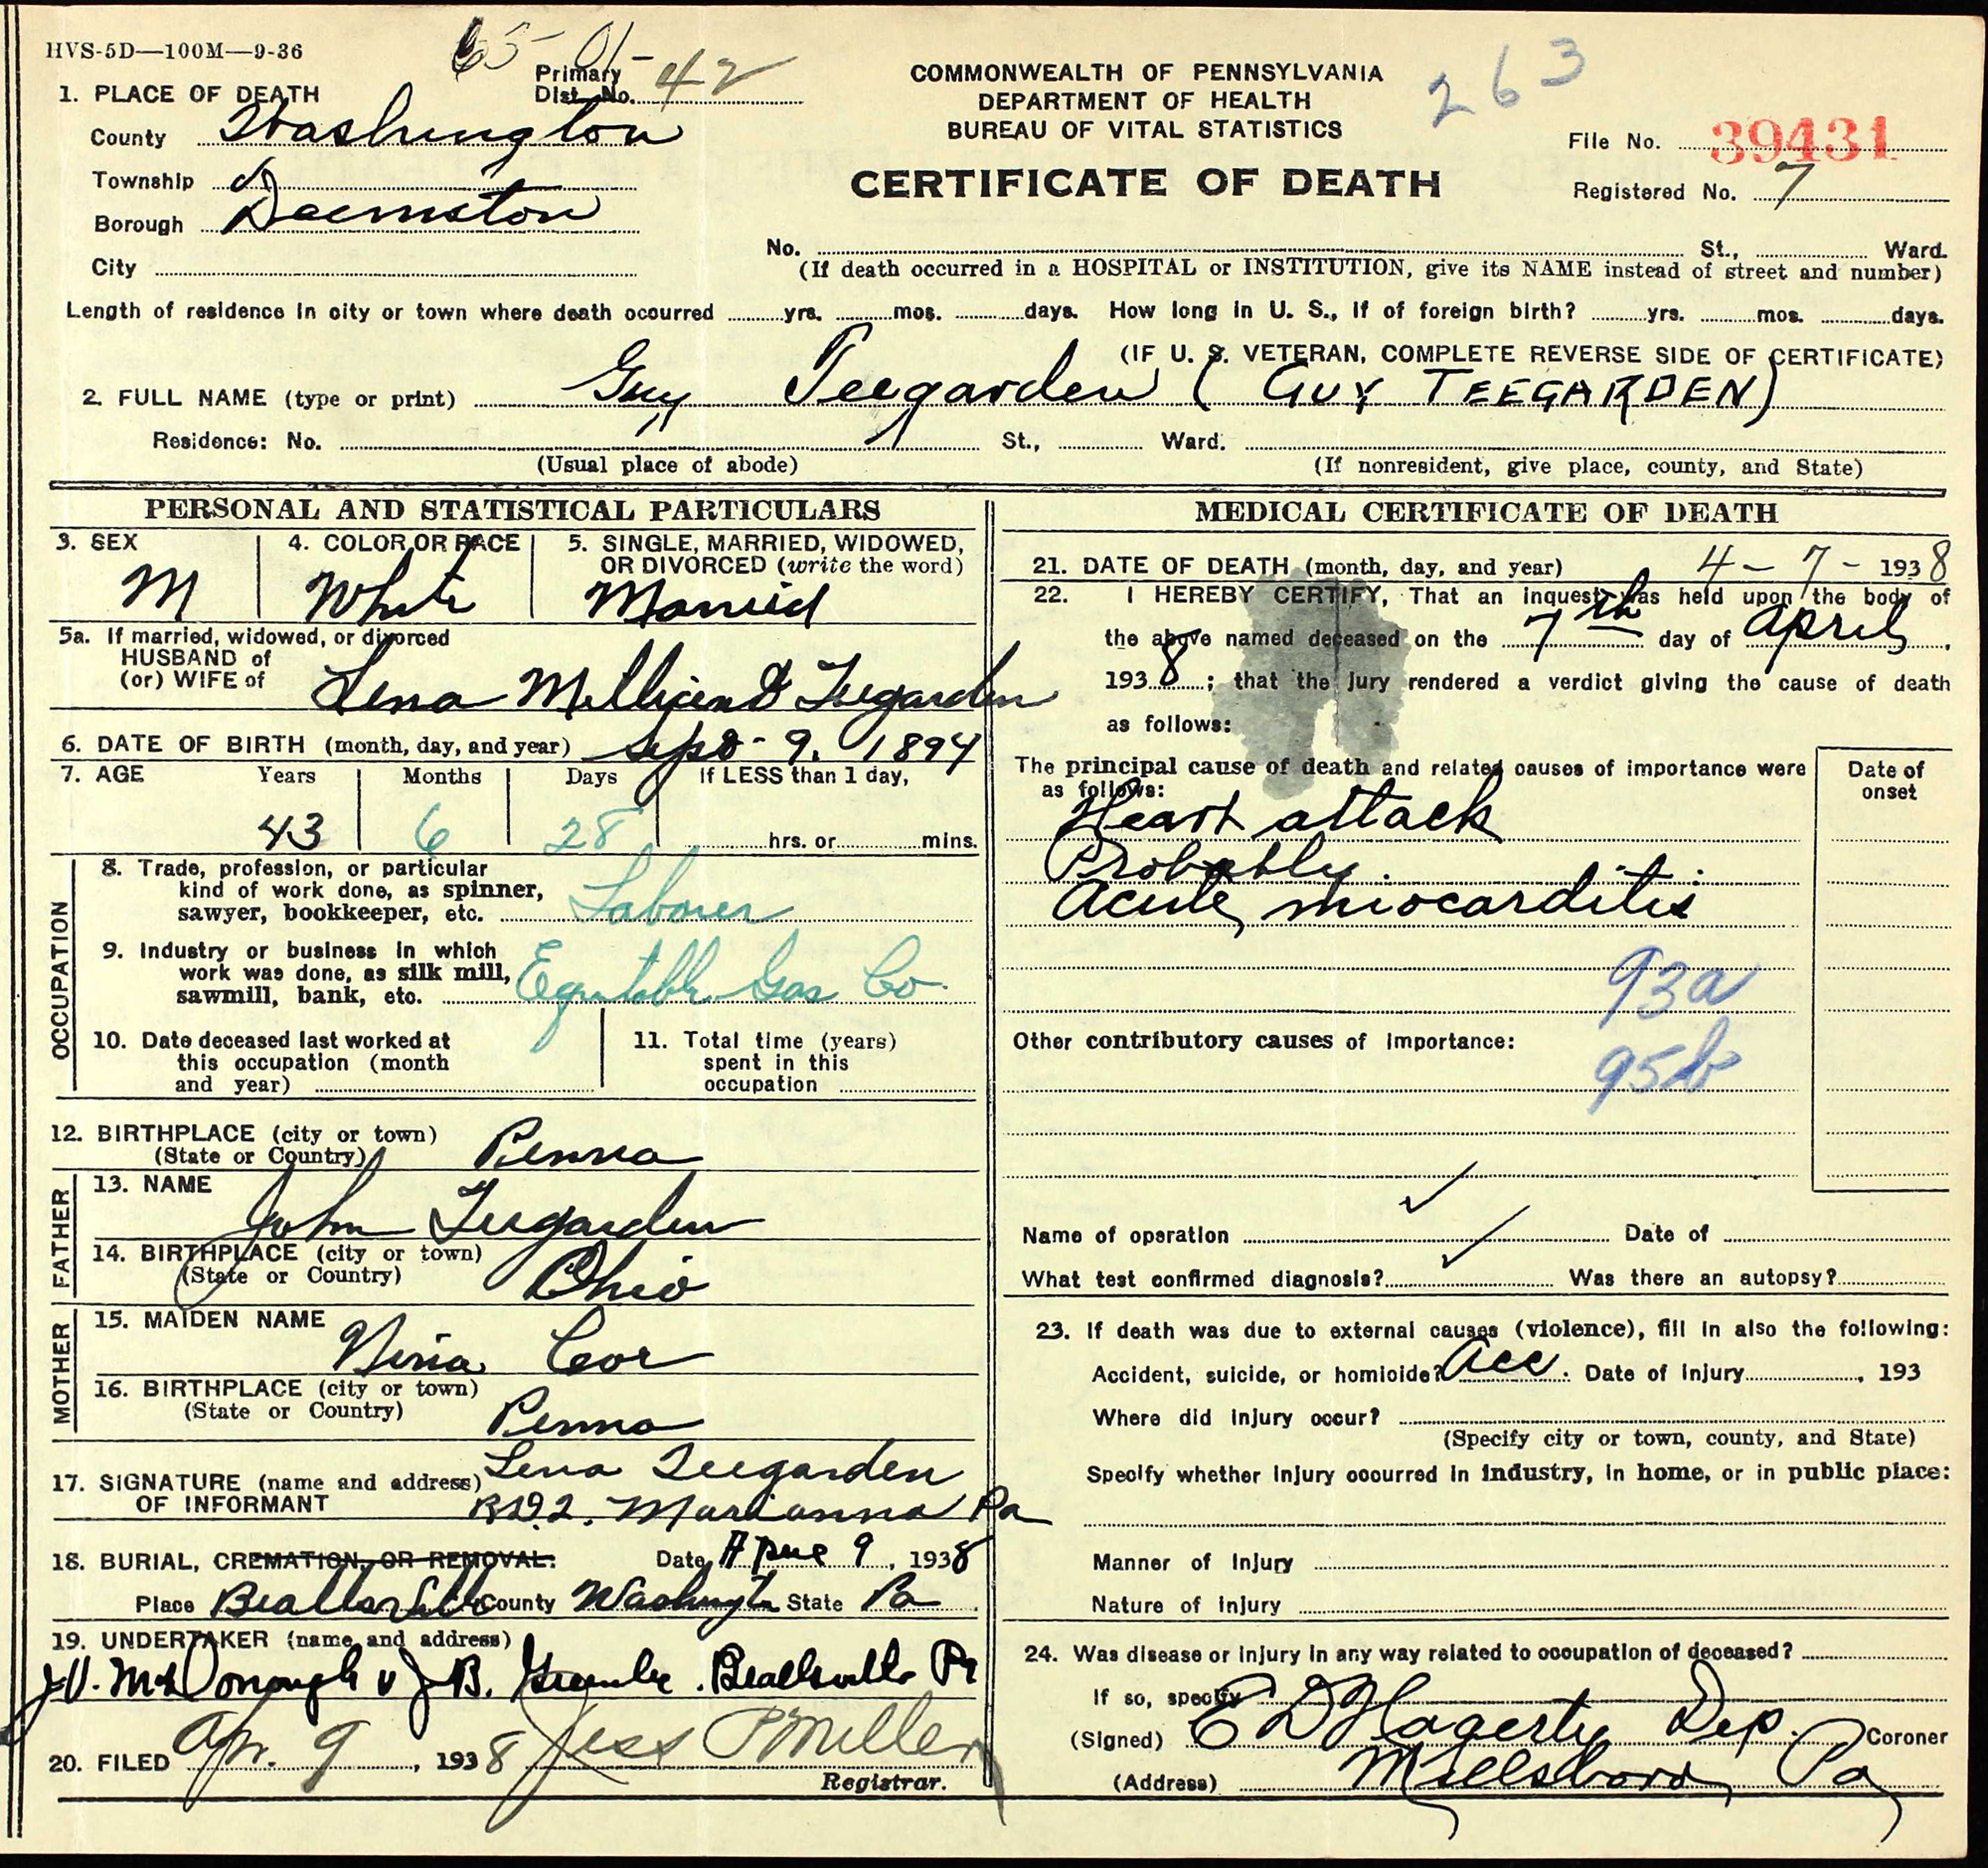 HVS-5D—100M—9-36
63-01-
Primary Dist. No. 42
COMMONWEALTH OF PENNSYLVANIA
DEPARTMENT OF HEALTH
BUREAU OF VITAL STATISTICS
CERTIFICATE OF DEATH
263
File No. 39431
Registered No. 7
1. PLACE OF DEATH
County Washington
Township
Borough Deemston
City
No. St., Ward.
(If death occurred in a HOSPITAL or INSTITUTION, give its NAME instead of street and number)
Length of residence in city or town where death occurred yrs. mos. days. How long in U. S., if of foreign birth? yrs. mos. days.
(IF U. S. VETERAN, COMPLETE REVERSE SIDE OF CERTIFICATE)
2. FULL NAME (type or print) Guy Teegarden (GUY TEEGARDEN)
Residence: No. St., Ward.
(Usual place of abode) (If nonresident, give place, county, and State)
PERSONAL AND STATISTICAL PARTICULARS
3. SEX M
4. COLOR OR RACE White
5. SINGLE, MARRIED, WIDOWED, OR DIVORCED (write the word) Married
5a. If married, widowed, or divorced
HUSBAND of
(or) WIFE of Lena Teegarden
6. DATE OF BIRTH (month, day, and year) Sept. 9. 1894
7. AGE Years Months Days If LESS than 1 day,
43 6 28 hrs. or mins.
OCCUPATION
8. Trade, profession, or particular
kind of work done, as spinner,
sawyer, bookkeeper, etc. Laborer
9. Industry or business in which
work was done, as silk mill,
sawmill, bank, etc. Equitable Gas Co.
10. Date deceased last worked at
this occupation (month
and year)
11. Total time (years)
spent in this
occupation
12. BIRTHPLACE (city or town)
(State or Country) Penna
FATHER
13. NAME John Teegarden
14. BIRTHPLACE (city or town)
(State or Country) Ohio
MOTHER
15. MAIDEN NAME Nina
16. BIRTHPLACE (city or town)
(State or Country) Penna
17. SIGNATURE (name and address) Lena Teegarden
OF INFORMANT R.D.2. Marianna Pa
18. BURIAL, CREMATION, OR REMOVAL: Date 9, 1938
Place Beallsville County Washington State Pa
19. UNDERTAKER (name and address)
J.V. McDonough J B. Beallsville Pa
20. FILED Apr. 9, 1938 Jess P Miller
Registrar.
MEDICAL CERTIFICATE OF DEATH
21. DATE OF DEATH (month, day, and year) 4-7-1938
22. I HEREBY CERTIFY, That an inquest was held upon the body of
the above named deceased on the 7th day of April,
1938; that the jury rendered a verdict giving the cause of death
as follows:
The principal cause of death and related causes of importance were
as follows:
Date of onset
Heart attack
Probably
Acute miocarditis
93a
Other contributory causes of importance:
95b
Name of operation Date of
What test confirmed diagnosis? Was there an autopsy?
23. If death was due to external causes (violence), fill in also the following:
Accident, suicide, or homicide? Acc. Date of injury, 193
Where did injury occur?
(Specify city or town, county, and State)
Specify whether injury occurred in industry, in home, or in public place:
Manner of injury
Nature of injury
24. Was disease or injury in any way related to occupation of deceased?
If so, specify
(Signed) E D Hagerty Dep. Coroner
(Address) Millsboro, Pa